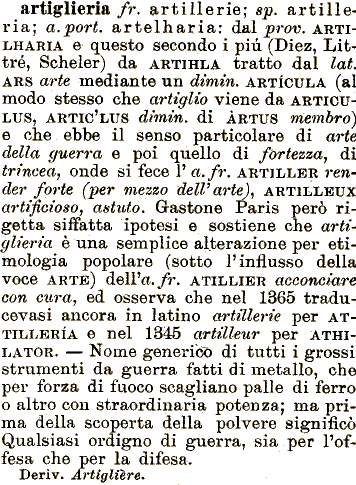 artiglieria fr. artillerie; sp. artille-
ria; a. port. artelharia: dal prov. ARTI-
LHARIA e questo secondo i piú (Diez, Lit-
tré, Scheler) da ARTIHLA tratto dal lat.
ARS arte mediante un dimin. ARTÍCULA (al
modo stesso che artiglio viene da ARTICU-
LUS, ARTIC'LUS dimin. di ÀRTUS membro)
e che ebbe il senso particolare di arte
della guerra e poi quello di fortezza, di
trincea, onde si fece l' a. fr. ARTILLER ren-
der forte (per mezzo dell'arte), ARTILLEUX
artificioso, astuto. Gastone Paris però ri-
getta siffatta ipotesi e sostiene che arti-
glieria è una semplice alterazione per eti-
mologia popolare (sotto l'influsso della
voce ARTE) dell'a. fr. ATILLIER acconciare
con cura, ed osserva che nel 1365 tradu-
cevasi ancora in latino artillerie per AT-
TILLERÍA e nel 1345 artilleur per ATHI-
LATOR. — Nome generico di tutti i grossi
strumenti da guerra fatti di metallo, che
per forza di fuoco scagliano palle di ferro
o altro con straordinaria potenza; ma pri-
ma della scoperta della polvere significò
Qualsiasi ordigno di guerra, sia per l'of-
fesa che per la difesa.
Deriv. Artiglière.